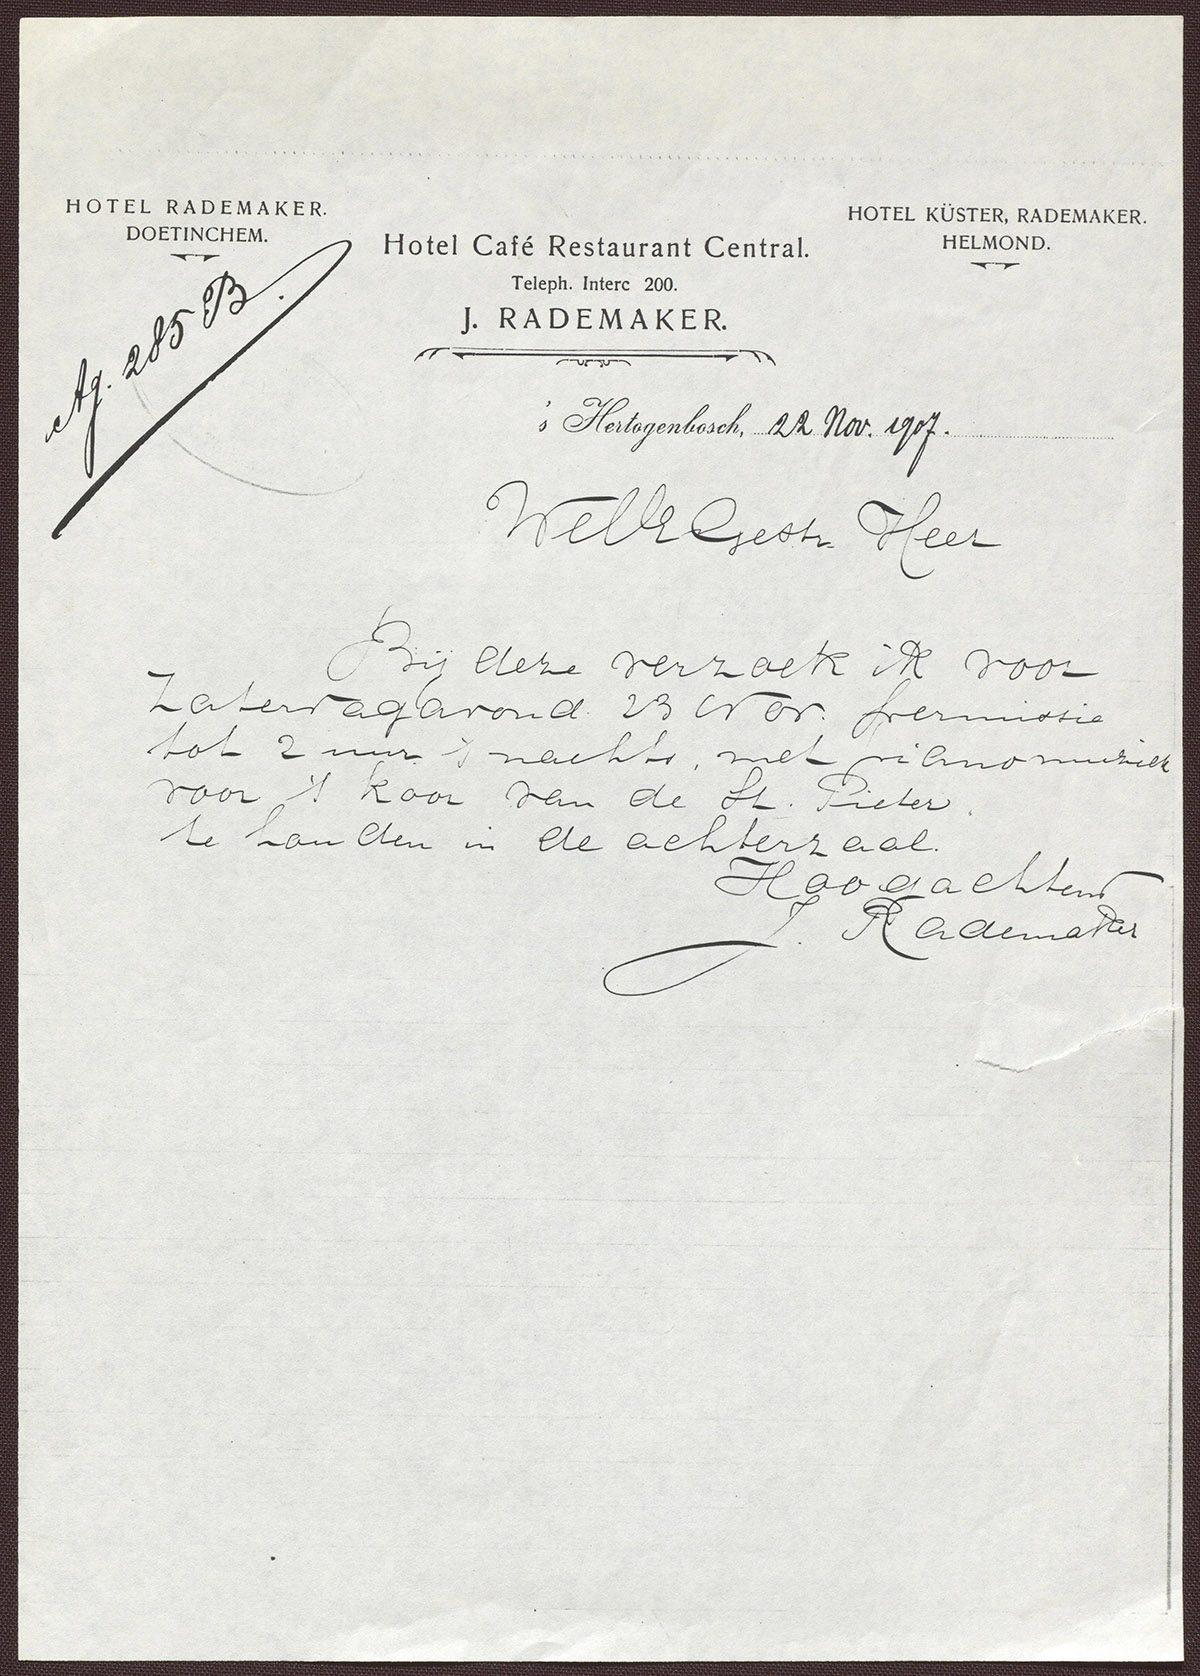 HOTEL RADEMAKER.
DOETINCHEM.
HOTEL KÜSTER, RADEMAKER.
HELMOND.
Hotel Café Restaurant Central.
Teleph. Interc 200.
J. RADEMAKER.
Ag. 285 B.
's Hertogenbosch, 22 Nov. 1907.
WelEGestr. Heer
Bij deze verzoek ik voor
Zaterdagavond 23 Nov. permissie
tot 2 uur 's nachts, met pianomuziek
voor 't koor van de St. Pieter
te houden in de achterzaal.
Hoogachtend
J. Rademaker